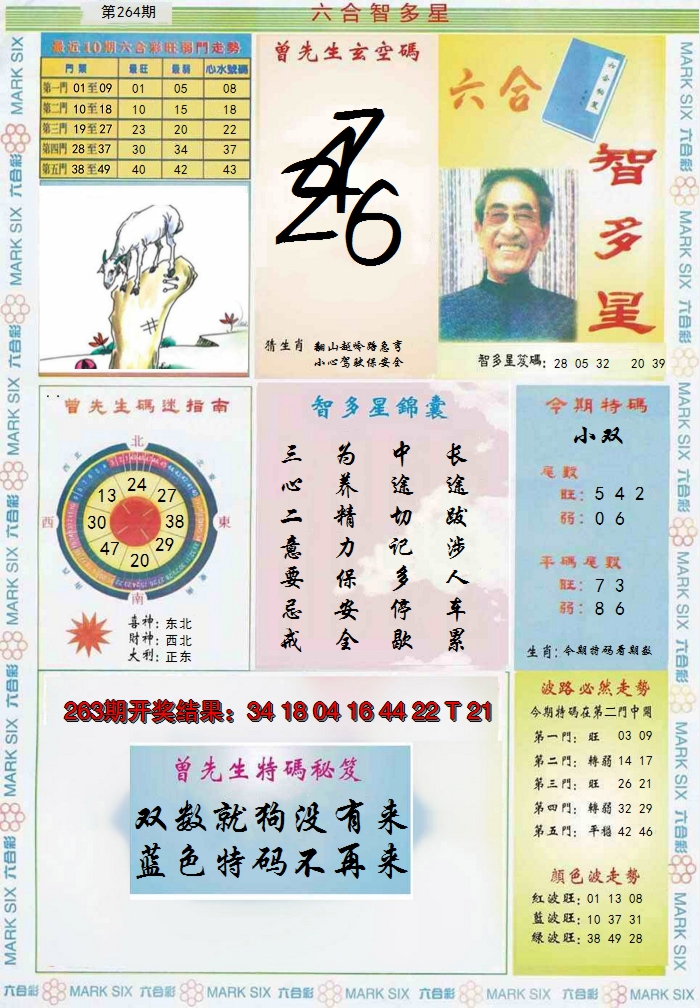 第264期
六合智多星
最近10期六合彩旺弱門走勢
門類 最旺 最弱 心水號碼
第一門 01至09 01 05 08
第二門 10至18 10 15 18
第三門 19至27 23 20 22
第四門 28至37 30 34 37
第五門 38至49 40 42 43
曾先生玄空碼
猜生肖 翻山越岭路急弯
小心驾驶保安全
六合
智多星
智多星笈碼: 28 05 32 20 39
曾先生碼迷指南
北
西
東
南
24
13 27
30 38
47 29
20
喜神: 东北
財神: 西北
大利: 正东
智多星錦囊
长途跋涉人车累
中途切记多停歇
为养精力保安全
三心二意要忌戒
今期特碼
小双
尾數
旺: 5 4 2
弱: 0 6
平碼尾數
旺: 7 3
弱: 8 6
生肖: 今期特码看期数
263期开奖结果: 34 18 04 16 44 22 T 21
曾先生特碼秘笈
双数就狗没有来
蓝色特码不再来
波路必然走勢
今期特碼在第二門中開
第一門: 旺 03 09
第二門: 轉弱 14 17
第三門: 旺 26 21
第四門: 轉弱 32 29
第五門: 平穩 42 46
顔色波走勢
紅波旺: 01 13 08
藍波旺: 10 37 31
綠波旺: 38 49 28
六合彩 MARK SIX 六合彩 MARK SIX 六合彩 MARK SIX 六合彩 MARK SIX 六合彩 MARK SIX